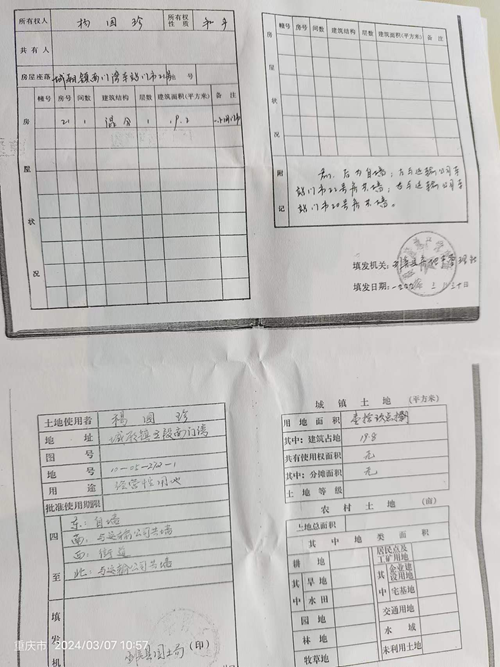 所有权人 杨国珍 所有权性质 私子
共有人
房屋座落 城厢镇南门停车站门市21号 号
房屋状况
幢号 房号 间数 建筑结构 层数 建筑面积(平方米) 备注
21 1 混合 1 19.8
房屋状况
幢号 房号 间数 建筑结构 层数 建筑面积(平方米) 备注
附记
前、后为自墙；左与运输公司车
站门市22号房共墙；右与运输公司车
站门市20号房共墙。
填发机关：
填发日期：
土地使用者 杨国珍
地址
图号
地号 11-05-272-1
用途
批准使用期限
四至
东：自墙
南：与运输公司共墙
西：街道
北：与运输公司共墙
填发机
国土局 (印)
城镇土地 (平方米)
用地面积 壹拾玖点捌
其中：建筑占地 19.8
共有使用权面积 无
其中：分摊面积 无
土地等级
农村土地 (亩)
土地总面积
其中地类面积
耕地 居民点及工矿用地
其中 旱地 其中 企业建设用地
水田 宅基地
园地 交通用地
林地 水域
牧草地 未利用土地
重庆市 2024/03/07 10:57